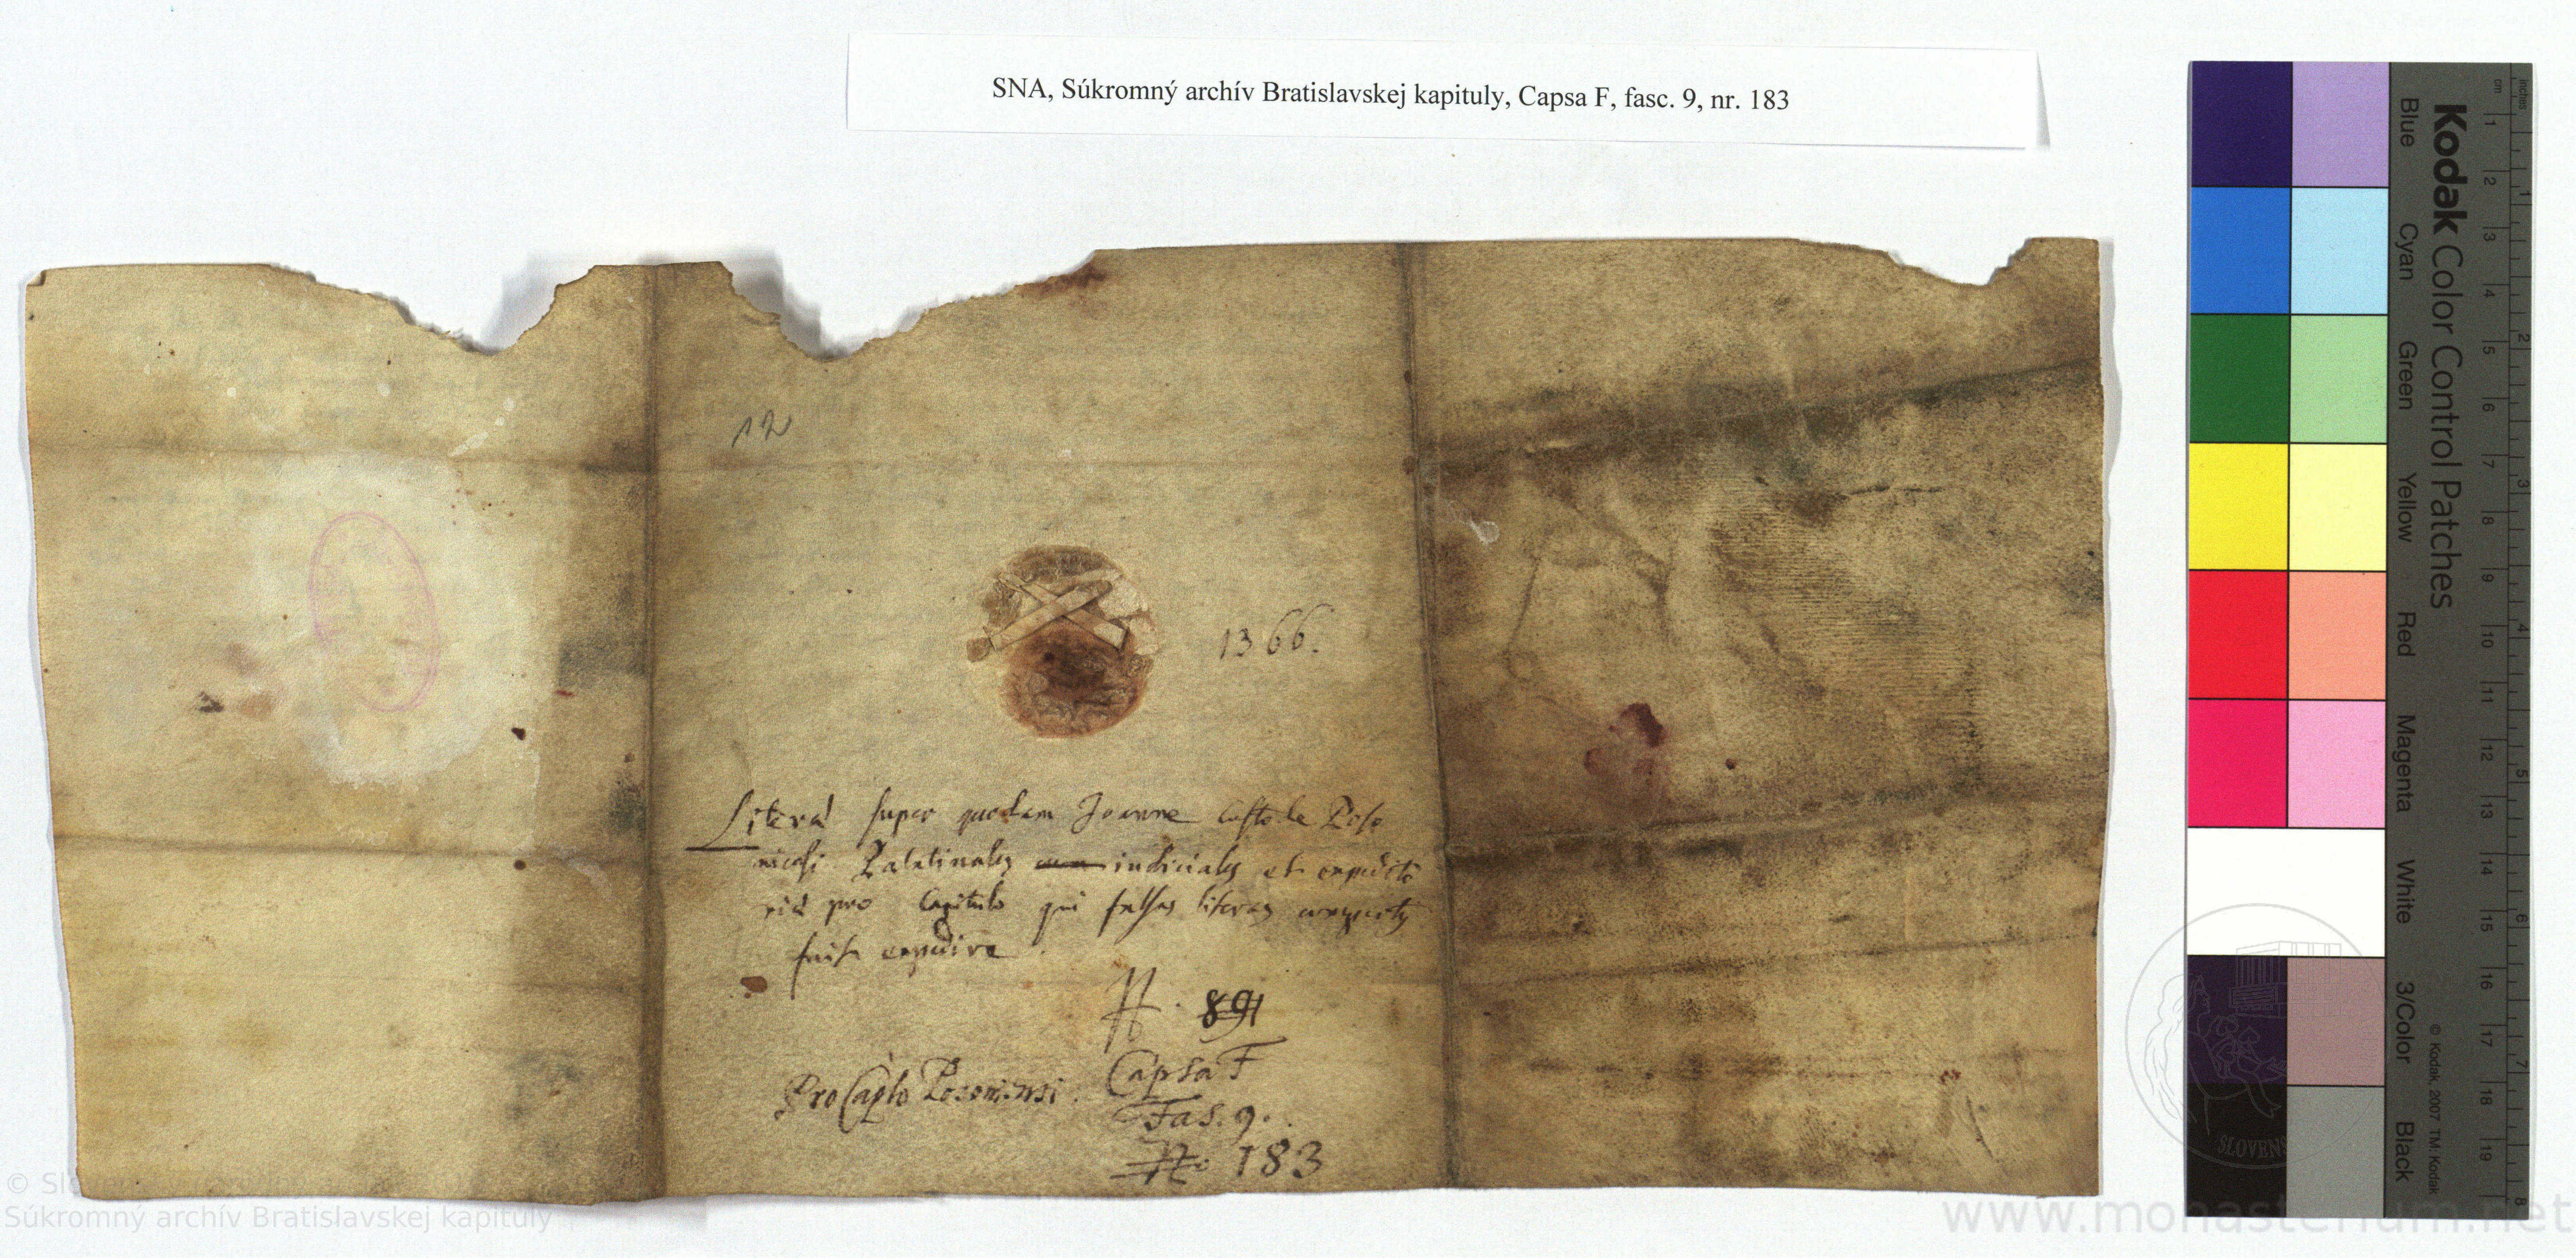 SNA, Súkromný archív Bratislavskej kapituly, Capsa F, fasc. 9, nr. 183
12
1366.
super quodam Joanne Custode Poso
et
pro Capitulo qui falsas literas
fuit
N. 891
Pro Caplo Posoniensi.
Capsa F
Fas. 9.
No 183
Kodak Color Control Patches
Blue Cyan Green Yellow Red Magenta White 3/Color Black
© Kodak, 2007 TM: Kodak
cm 1 2 3 4 5 6 7 8 9 10 11 12 13 14 15 16 17 18 19
inches 1 2 3 4 5 6 7 8
SLOVENS
Súkromný archív Bratislavskej kapituly
www.monasterium.net